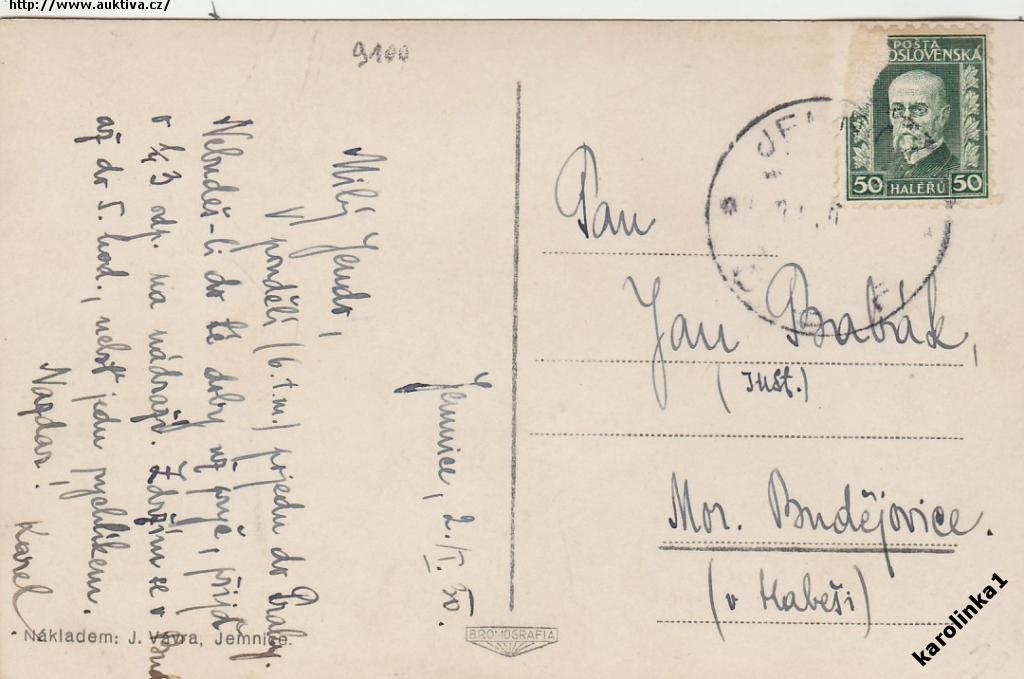 http://www.auktiva.cz/
9100
POŠTA
OSLOVENSKÁ
50 HALÉŘŮ 50
Jemnice, 2./I. 30.
Milý Jendo,
V pondělí (6. t.m.) přijedu do Prahy.
Nebudeš-li do té doby už pryč, přijď
v 1/4 3 odp. na nádraží. Zdržím se v Bud
až do 5. hod., neboť jedu rychlíkem.
Nazdar!
Karel.
Pan
Jan Brabák,
(Inšt.)
Mor. Budějovice.
(v Habeši)
Nákladem: J. Vávra, Jemnice.
BROMOGRAFIA
karolinka1